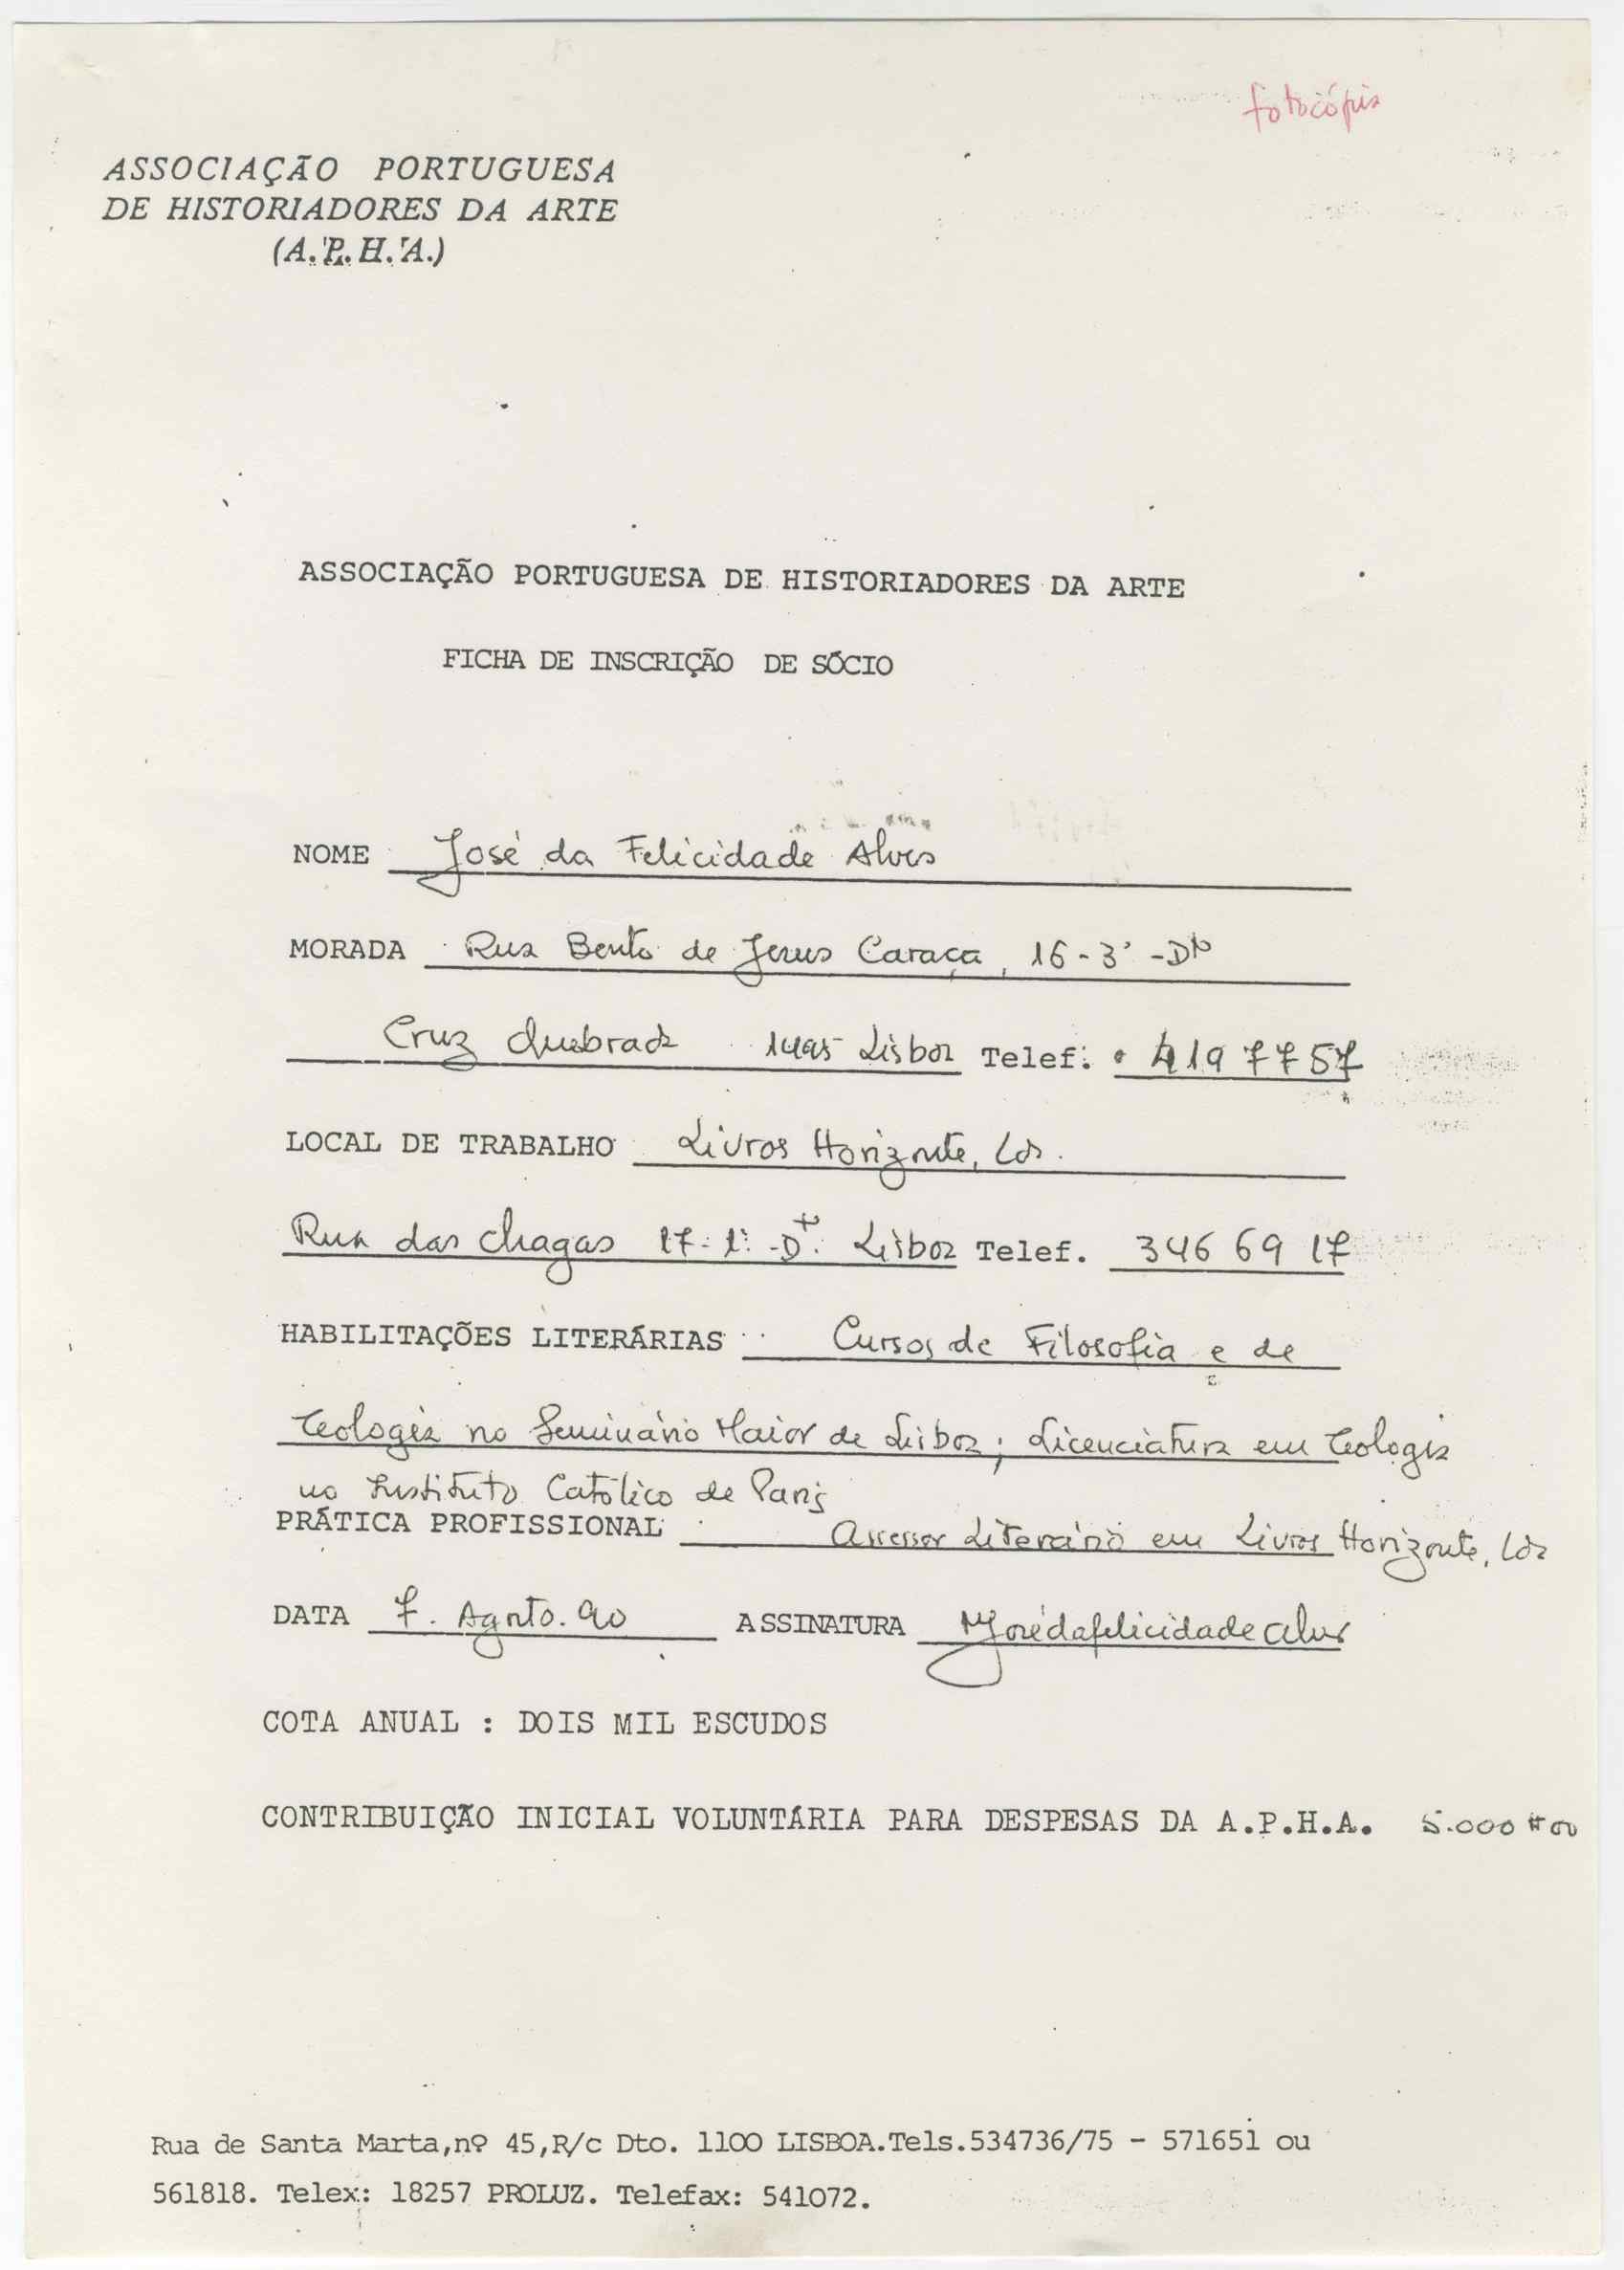 fotocópia
ASSOCIAÇÃO PORTUGUESA
DE HISTORIADORES DA ARTE
(A.P.H.A.)
ASSOCIAÇÃO PORTUGUESA DE HISTORIADORES DA ARTE
FICHA DE INSCRIÇÃO DE SÓCIO
NOME José da Felicidade Alves
MORADA Rua Bento de Jesus Caraça, 16-3º-Dto
Cruz Quebrada 1495 Lisboa Telef: 419 77 57
LOCAL DE TRABALHO Livros Horizonte, Lda.
Rua das Chagas 17-1º-Dt. Lisboa Telef. 346 69 17
HABILITAÇÕES LITERÁRIAS Cursos de Filosofia e de
Teologia no Seminário Maior de Lisboa; Licenciatura em Teologia
no Instituto Católico de Paris
PRÁTICA PROFISSIONAL Assessor Literário em Livros Horizonte, Lda
DATA 7. Agosto. 90 ASSINATURA Joédafelicidadealves
COTA ANUAL : DOIS MIL ESCUDOS
CONTRIBUIÇÃO INICIAL VOLUNTÁRIA PARA DESPESAS DA A.P.H.A. 5.000#00
Rua de Santa Marta,nº 45,R/c Dto. 1100 LISBOA.Tels.534736/75 - 571651 ou
561818. Telex: 18257 PROLUZ. Telefax: 541072.